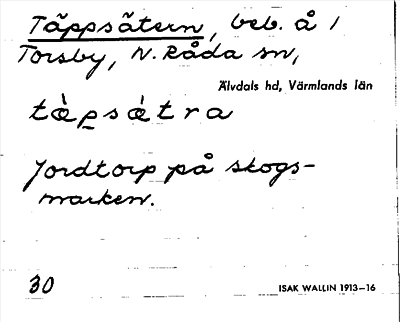 Täppsätern, beb. å 1
Torsby, N. Råda sn,
Älvdals hd, Värmlands län
tæ̀p̱sǽtra
Jordtorp på skogs-
marken.
30
ISAK WALLIN 1913–16